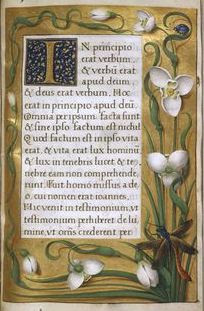 IN principio
erat verbum
& verbū erat
apud deum,
& deus erat verbum. Hoc
erat in principio apud deū.
Omnia per ipsum facta sunt
& sine ipso factum est nichil
Quod factum est in ipso vita
erat, & vita erat lux hominū
& lux in tenebris lucet & te-
nebre eam non comprehende
runt. Fuit homo missus a de
o, cui nomen erat ioannes,
Hic venit in testimonium, vt
testimonium perhiberet de lu
mine, vt omīs crederent per